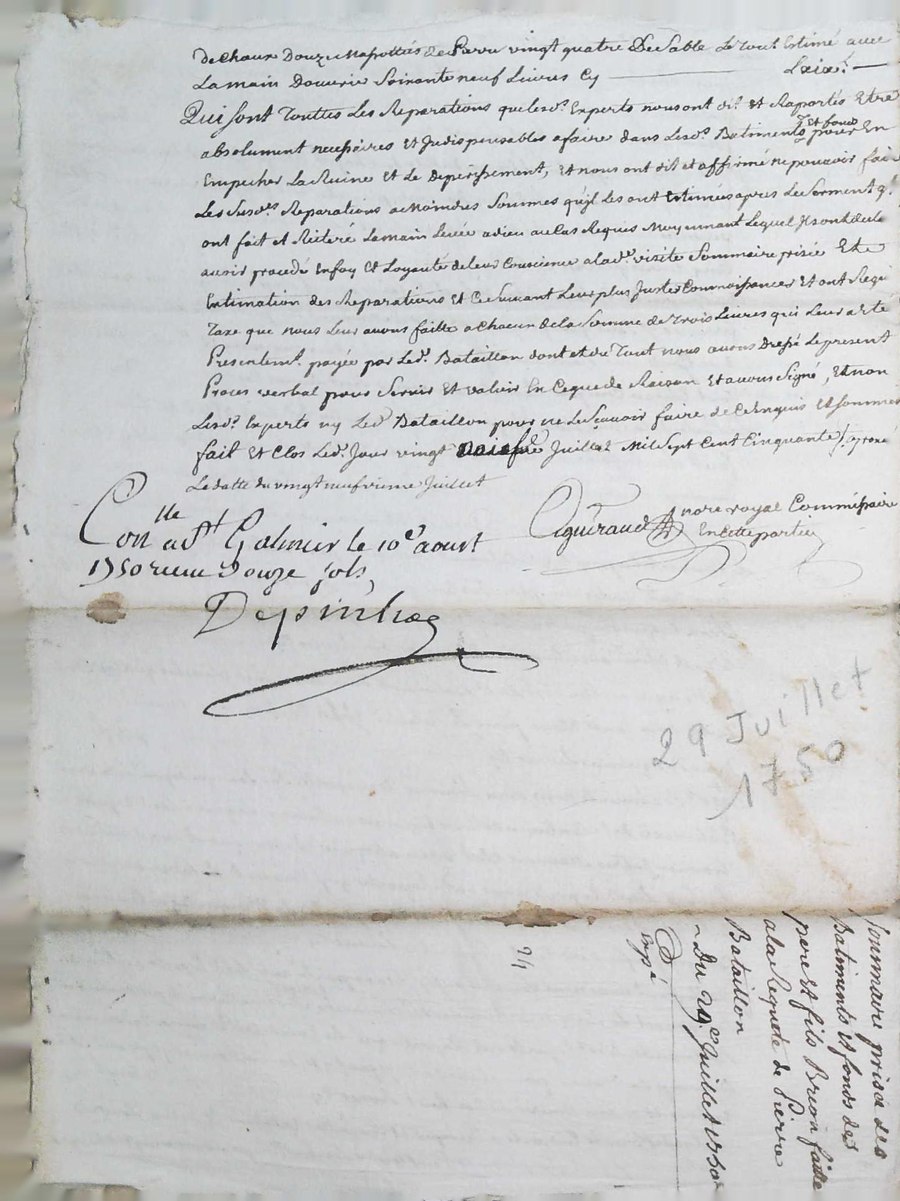 de chaux douze de vingt quatre de Sable Le Tout Estimé avec
Lamain Douvrie Soixante neuf Livres Cy Lxix.ˡ
Qui sont Touttes Les Reparations que lesd.ˢ Experts nous ont dit et Raportés Etre
absolument necessaires et Indispensables afaire dans Lesd.ˢ Batiments et fonds pour En
Empecher La Ruine et Le Deperissement, et nous ont dit et affirmé ne pouvoir fai
Les Susd.ᵉˢ Reparations a Moindres Sommes qu'il Les ont Estimées apres Le Serment q.
ont fait et Reiteré Lamain Levée a dieu au Cas Requis Moyennant Lequel
avoir procedé En foy Et Loyauté de leur Conscience a lad.ᵉ visite Sommaire prisée Et
Estimation des Reparations et Ce Suivant Leur plus Juste Connoissance Et ont Requi
Taxe que nous Leur avons faitte a Chacun de la Somme de Trois Livres qui Leur a eté
Presentem.ᵗ payée par Led.ᵗ Bataillon dont et du Tout nous avons Dressé Le present
Proces verbal pour Servir et valoir En Ce que de Raison Et avons Signé, Et non
Lesd.ˢ Experts ny Led.ᵗ Bataillon pour ne Le Scavoir faire de Ce Enquis Et Sommes
fait Et Clos Led.ᵗ Jour vingt Juillet Mil Sept Cent Cinquante
La datte du vingt neufvieme Juillet
Aguiraud nore royal Commissaire
En Cette partie
Conlle a St Galmier le 10e aoust
1750 recu Douze sols
Depinhac
29 Juillet
1750
Sommaire prisée des
Batiments et fonds des
pere et fils Brion faitte
a la Requete de Pierre
Bataillon
Du 29.ᵉ Juillet 1750
Expé
24